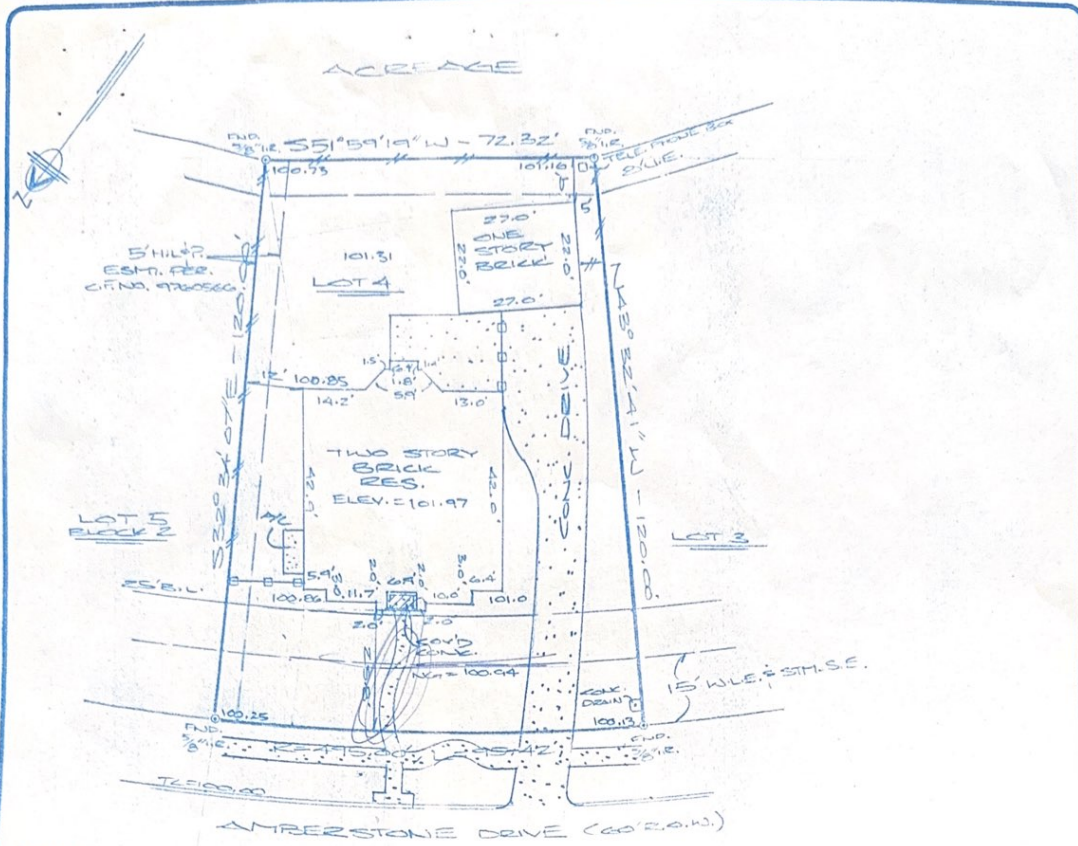 ACREAGE
FND.
5/8" I.R.
S51°59'19"W - 72.32'
FND.
5/8" I.R.
TELEPHONE BOX
8' U.E.
100.73
101.16
N
5
27.0'
ONE
STORY
BRICK
22.0'
22.0'
27.0'
5' H.L.&P.
ESMT. PER.
C.F. NO.
101.31
LOT 4
12'
100.85
1.5'
1.8'
5.9'
14.2'
13.0'
CONC. DRIVE
TWO STORY
BRICK
RES.
ELEV. = 101.97
42.0'
42.0'
LOT 5
BLOCK 2
LOT 3
A/C
25' B.L.
5.9'
2.0'
2.0'
3.0'
6.4'
100.86
11.7'
10.0'
101.0
2.0'
2.0
COV'D
CONC.
NG = 100.94
15' W.L.E. & STM. S.E.
CONC.
DRAIN
100.25
100.13
FND.
5/8" I.R.
FND.
5/8" I.R.
R=495.00'
TC=100.00
AMBERSTONE DRIVE (60' R.O.W.)